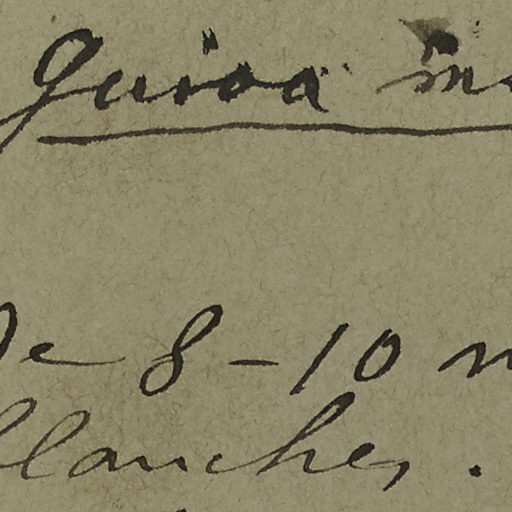 Guioa in
de 8-10 m
blanches.